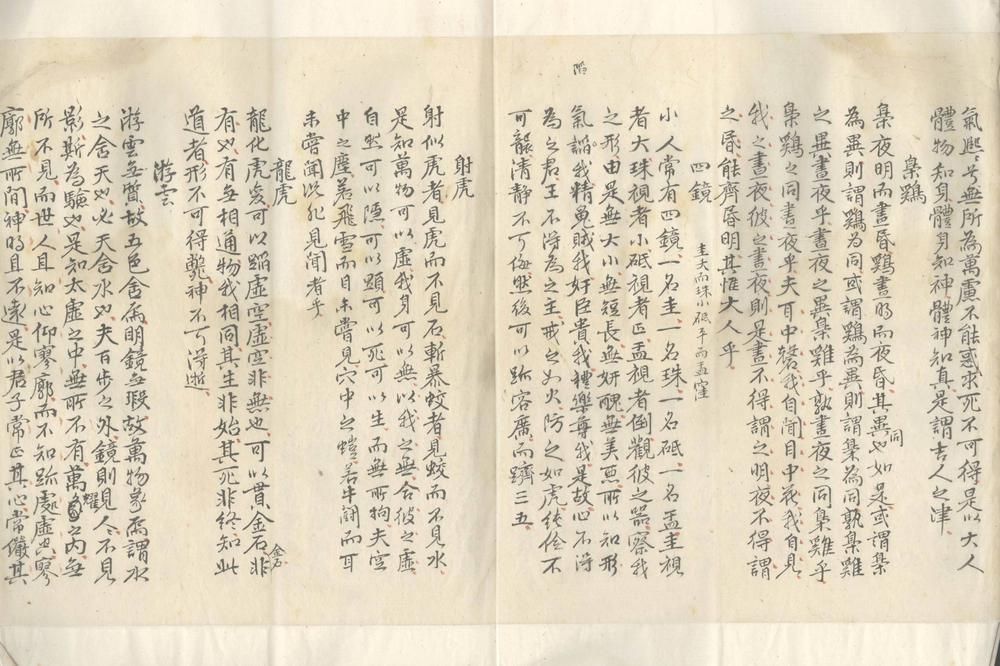 氣熙〻兮無所為萬慮不能惑求死不可得是以大人
體物知身體身知神體神知真是謂吉人之津
梟鷄
梟夜明而晝昏鷄晝明而夜昏其異也如是或謂梟
同
為異則謂鷄為同或謂鷄為異則謂梟為同孰梟雞
之異晝夜乎晝夜之異梟雞乎孰晝夜之同梟雞乎
梟鷄之同晝夜乎夫耳中磬我自聞目中花我自見
我之晝夜彼之晝夜則是晝不得謂之明夜不得謂
之昏能齊昏明其惟大人乎
四鏡 圭大而珠小砥平而盂窪
小人常有四鏡一名圭一名珠一名砥一名盂圭視
者大珠視者小砥視者正盂視者倒觀彼之器察我
之形由是無大小無短長無妍醜無美惡所以知形
氣謟我精魄賊我奸臣貴我禮樂尊我是故心不得
謟
為之君王不得為之主戒之如火防之如虎純儉不
可襲清静不可侮然後可以跡容廣而躋三五
射虎
射似虎者見虎而不見石斬暴蛟者見蛟而不見水
是知萬物可以虛我身可以無以我之無合彼之虛
自然可以隱可以顯可以死可以生而無所拘夫空
中之塵若飛雪而目未嘗見穴中之螘若牛鬪而耳
未嘗聞況非見聞者乎
龍虎
龍化虎變可以蹈虛空虛空非無也可以貫金石非
金石
有也有無相通物我相同其生非始其死非終知此
道者形不可得斃神不可得逝
游雲
游雲無質故五色含焉明鏡無瑕故萬物象焉謂水
之含天也必天含水也夫百步之外鏡則見人人不見
影斯為驗也是知太虛之中無所不有萬耀之內無
所不見而世人且知心仰寥廓而不知跡處虛空寥
廓無所間神明且不遠是以君子常正其心常儼其